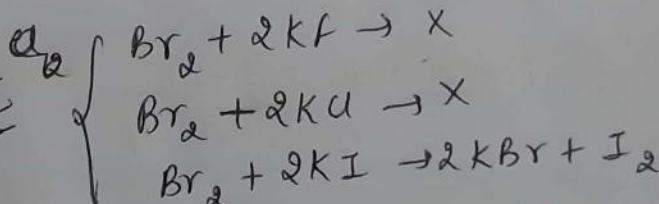 Q2
Br2 + 2KF → X
Br2 + 2KCl → X
Br2 + 2KI → 2KBr + I2